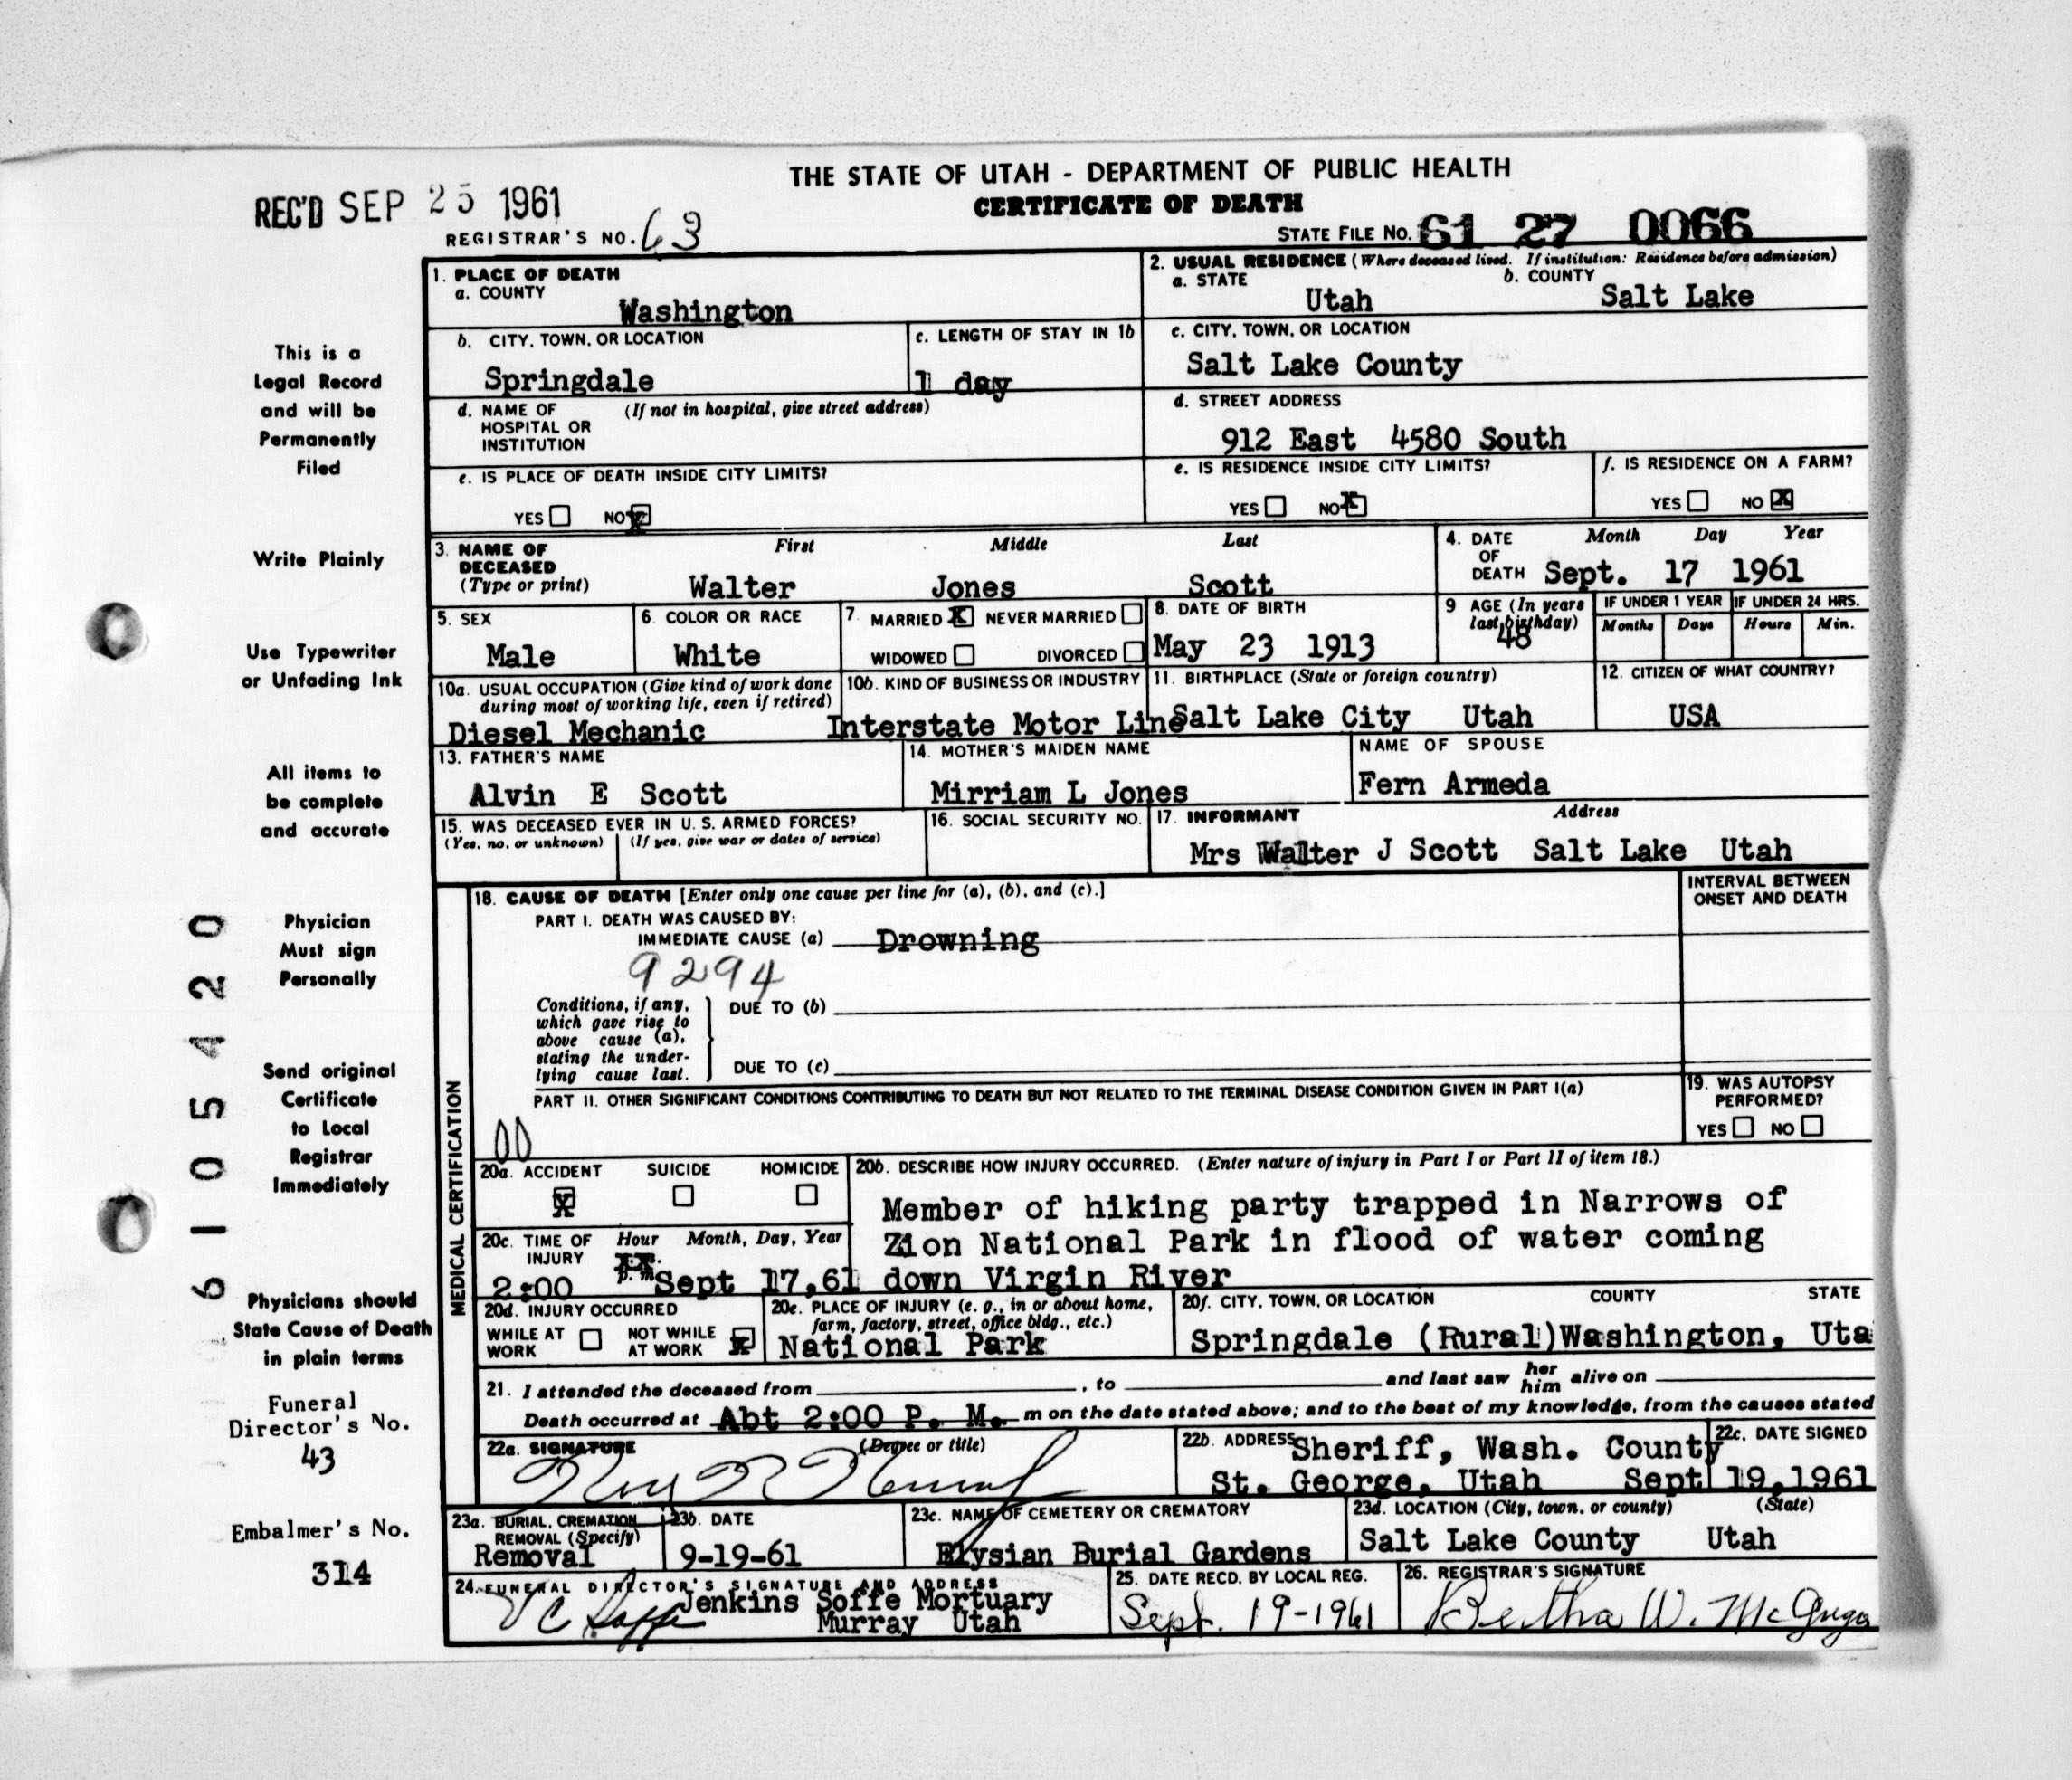 THE STATE OF UTAH - DEPARTMENT OF PUBLIC HEALTH
CERTIFICATE OF DEATH
REC'D SEP 25 1961
REGISTRAR'S NO. 63
STATE FILE NO. 61 27 0066
This is a
Legal Record
and will be
Permanently
Filed
Write Plainly
Use Typewriter
or Unfading Ink
All items to
be complete
and accurate
Physician
Must sign
Personally
Send original
Certificate
to Local
Registrar
Immediately
Physicians should
State Cause of Death
in plain terms
Funeral
Director's No.
43
Embalmer's No.
314
6105420
1. PLACE OF DEATH
a. COUNTY
Washington
2. USUAL RESIDENCE (Where deceased lived. If institution: Residence before admission)
a. STATE b. COUNTY
Utah Salt Lake
b. CITY, TOWN, OR LOCATION
Springdale
c. LENGTH OF STAY IN 1b
1 day
c. CITY, TOWN, OR LOCATION
Salt Lake County
d. NAME OF (If not in hospital, give street address)
HOSPITAL OR
INSTITUTION
d. STREET ADDRESS
912 East 4580 South
e. IS PLACE OF DEATH INSIDE CITY LIMITS?
YES NO X
e. IS RESIDENCE INSIDE CITY LIMITS?
YES NO X
f. IS RESIDENCE ON A FARM?
YES NO X
3. NAME OF First Middle Last
DECEASED
(Type or print) Walter Jones Scott
4. DATE Month Day Year
OF
DEATH Sept. 17 1961
5. SEX
Male
6. COLOR OR RACE
White
7. MARRIED X NEVER MARRIED
WIDOWED DIVORCED
8. DATE OF BIRTH
May 23 1913
9 AGE (In years
last birthday)
48
IF UNDER 1 YEAR IF UNDER 24 HRS.
Months Days Hours Min.
10a. USUAL OCCUPATION (Give kind of work done
during most of working life, even if retired)
Diesel Mechanic
10b. KIND OF BUSINESS OR INDUSTRY
Interstate Motor Line
11. BIRTHPLACE (State or foreign country)
Salt Lake City Utah
12. CITIZEN OF WHAT COUNTRY?
USA
13. FATHER'S NAME
Alvin E Scott
14. MOTHER'S MAIDEN NAME
Mirriam L Jones
NAME OF SPOUSE
Fern Armeda
15. WAS DECEASED EVER IN U. S. ARMED FORCES?
(Yes, no, or unknown) (If yes, give war or dates of service)
16. SOCIAL SECURITY NO.
17. INFORMANT Address
Mrs Walter J Scott Salt Lake Utah
MEDICAL CERTIFICATION
18. CAUSE OF DEATH [Enter only one cause per line for (a), (b), and (c).]
PART I. DEATH WAS CAUSED BY:
IMMEDIATE CAUSE (a) Drowning
9294
INTERVAL BETWEEN
ONSET AND DEATH
Conditions, if any,
which gave rise to
above cause (a),
stating the under-
lying cause last.
DUE TO (b)
DUE TO (c)
PART II. OTHER SIGNIFICANT CONDITIONS CONTRIBUTING TO DEATH BUT NOT RELATED TO THE TERMINAL DISEASE CONDITION GIVEN IN PART I(a)
00
19. WAS AUTOPSY
PERFORMED?
YES NO
20a. ACCIDENT SUICIDE HOMICIDE
X
20b. DESCRIBE HOW INJURY OCCURRED. (Enter nature of injury in Part I or Part II of item 18.)
Member of hiking party trapped in Narrows of
Zion National Park in flood of water coming
down Virgin River
20c. TIME OF Hour Month, Day, Year
INJURY
2:00 p. m Sept 17,61
20d. INJURY OCCURRED
WHILE AT WORK NOT WHILE AT WORK X
20e. PLACE OF INJURY (e. g., in or about home,
farm, factory, street, office bldg., etc.)
National Park
20f. CITY, TOWN, OR LOCATION COUNTY STATE
Springdale (Rural)Washington, Uta
21. I attended the deceased from , to and last saw her him alive on
Death occurred at Abt 2:00 P. M. m on the date stated above; and to the best of my knowledge, from the causes stated
22a. SIGNATURE (Degree or title)
22b. ADDRESS
Sheriff, Wash. County
St. George, Utah
22c. DATE SIGNED
Sept 19,1961
23a. BURIAL, CREMATION
REMOVAL (Specify)
Removal
23b. DATE
9-19-61
23c. NAME OF CEMETERY OR CREMATORY
Elysian Burial Gardens
23d. LOCATION (City, town, or county) (State)
Salt Lake County Utah
24. FUNERAL DIRECTOR'S SIGNATURE AND ADDRESS
V C Soffe Jenkins Soffe Mortuary
Murray Utah
25. DATE RECD. BY LOCAL REG.
Sept. 19-1961
26. REGISTRAR'S SIGNATURE
Bertha W. McGrego